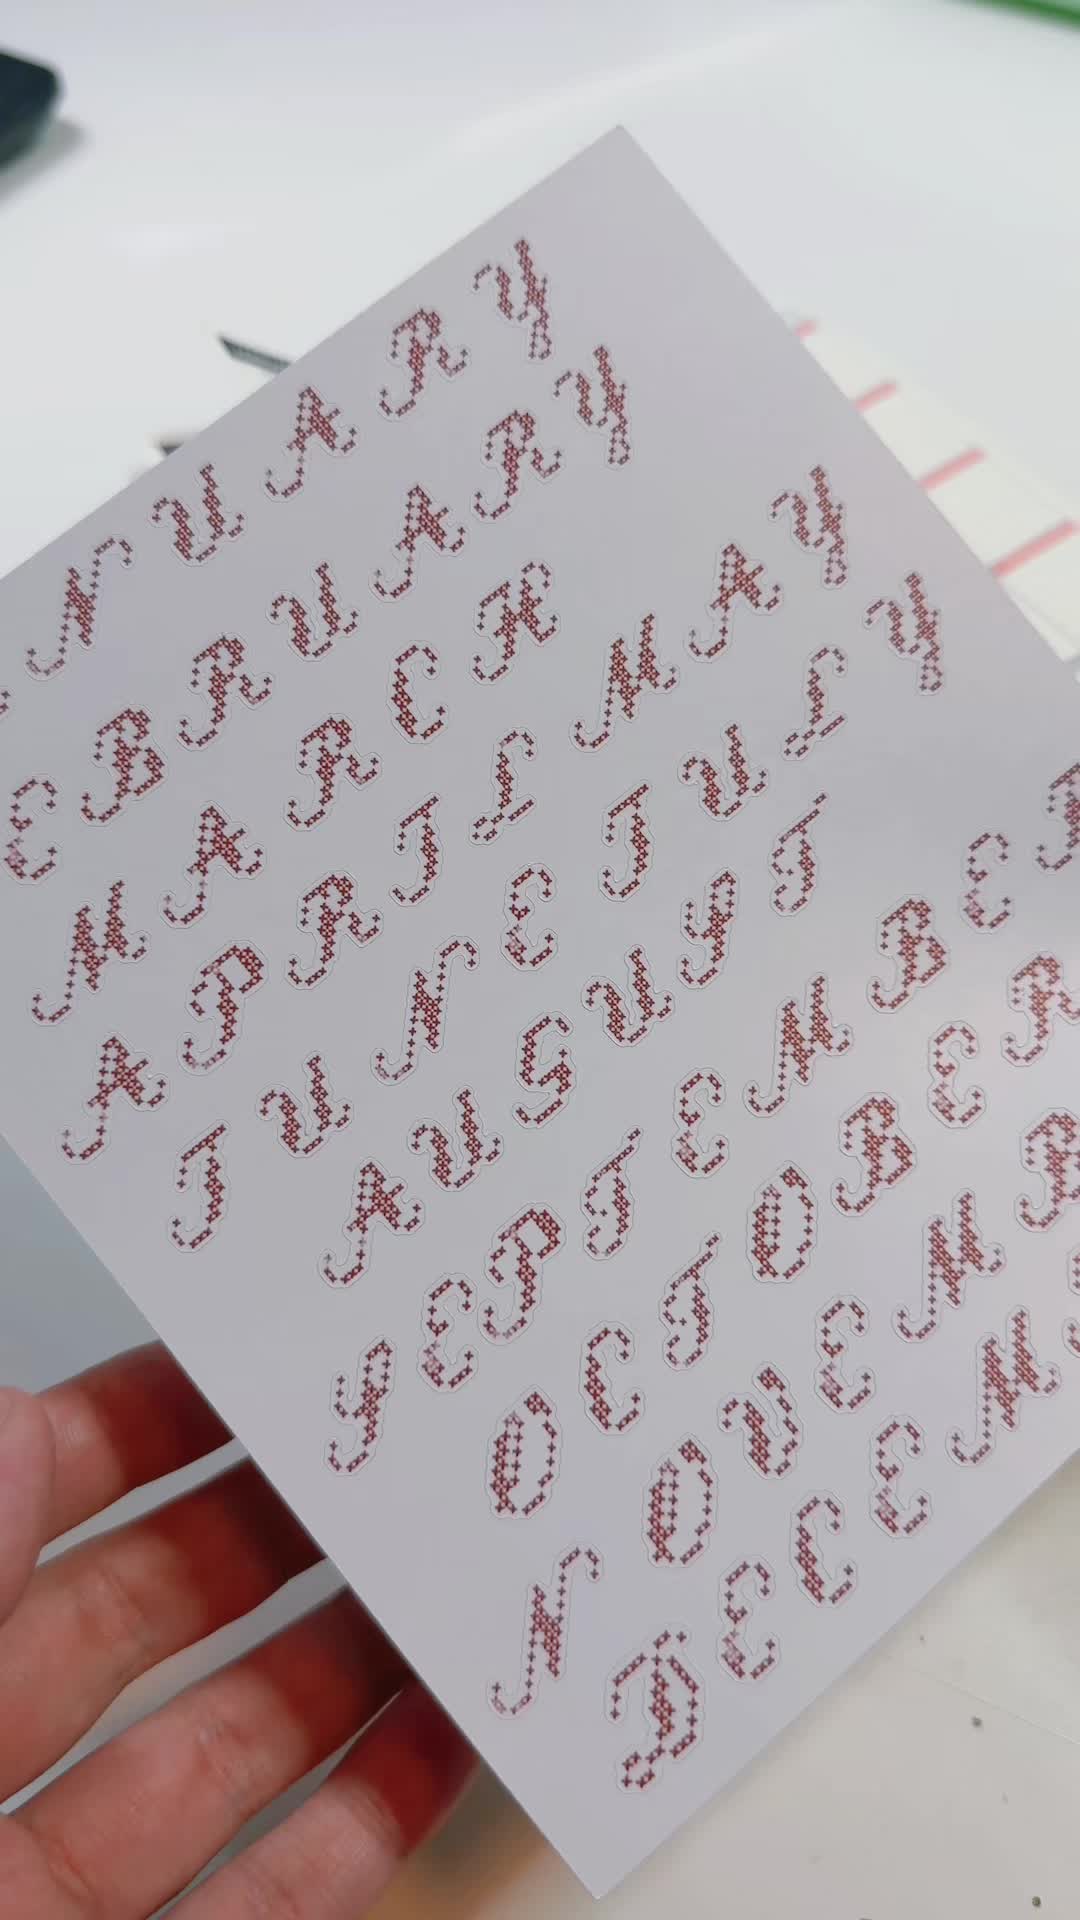 NUARY
EBRUARY
MARCH
APRIL MAY
JUNE JULY
AUGUST
SEPTEMBER
OCTOBER
NOVEMB
DECEM